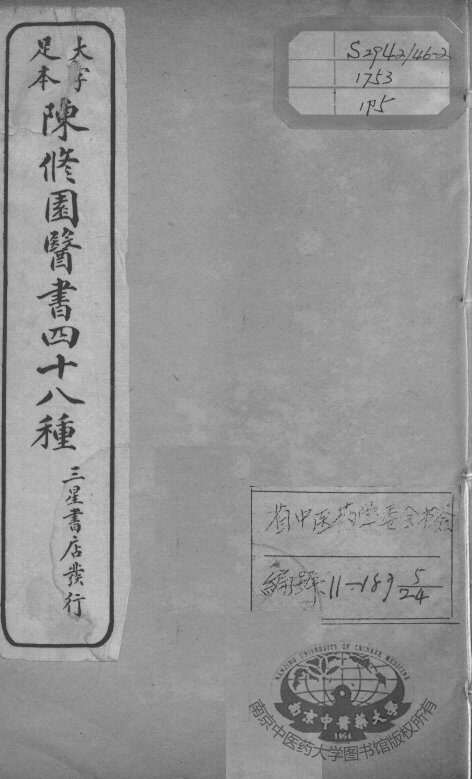 大字
足本
陳修園醫書四十八種
三星書店發行
S2942/46-2
1753
1P5
省中医药学委会书籍
編號:11-189 5/24
NANJING UNIVERSITY OF CHINESE MEDICINE
南京中醫藥大學
1954
南京中医药大学图书馆版权所有